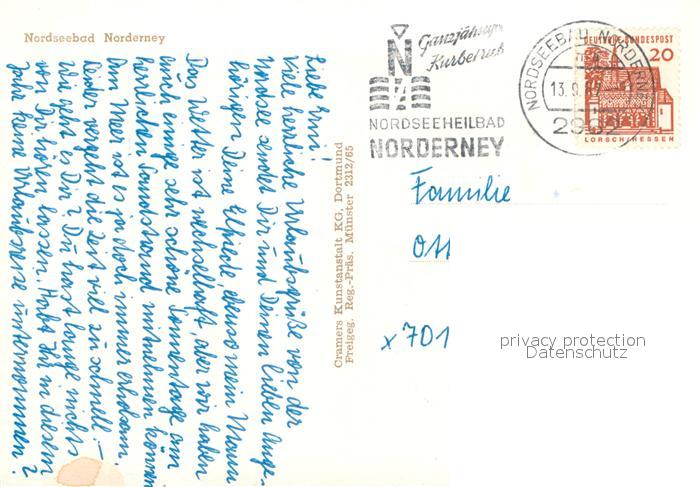 Nordseebad Norderney
Liebe Mimi!
Viele herrliche Urlaubsgrüße von der
Nordsee sendet Dir und Deinen lieben Ange-
hörigen Deine Elfriede, ebenso mein Mann
Das Wetter ist wechselhaft, aber wir haben
auch einige sehr schöne Sonnentage am
herrlichen Sandstrand mitnehmen können
Am Meer ist es ja doch immer erholsam.
Leider vergeht die Zeit viel zu schnell. –
Wie geht es Dir? Du hast lange nichts
von Dir hören lassen. Habt Ihr in diesem
Jahr keine Urlaubsreise unternommen?
Cramers Kunstanstalt KG, Dortmund
Freigeg. Reg.-Präs. Münster 2312/65
Ganzjährig
Kurbetrieb
N
NORDSEEHEILBAD
NORDERNEY
NORDSEEBAD NORDERNEY
13.9.67
2982
DEUTSCHE BUNDESPOST
20
LORSCH/HESSEN
Familie
Ott
x 701
privacy protection
Datenschutz